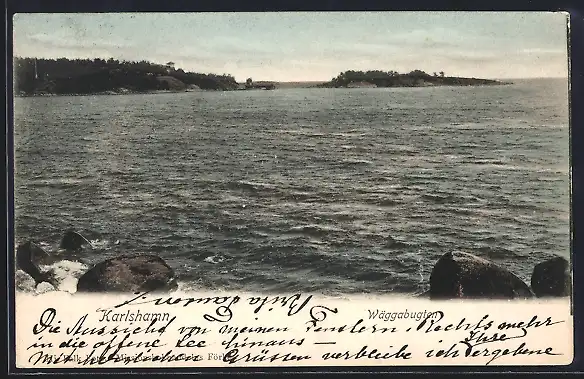 Karlshamn
Wäggabugten
Die Aussicht von meinen Fenstern. Rechts mehr
in die offene See hinaus —
Mit herzlichen Grüssen verbleibe ich Ihre ergebene